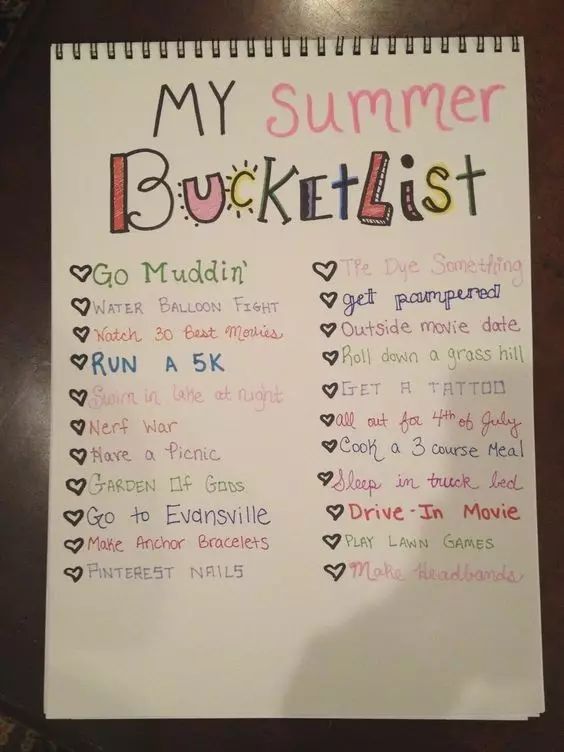 MY Summer
BUCKEtList
Go Muddin'
WATER BALLOON FIGHT
Watch 30 Best Movies
RUN A 5K
Swim in lake at night
Nerf War
Have a Picnic
GARDEN Of Gods
Go to Evansville
Make Anchor Bracelets
PINTEREST NAILS
Tie Dye Something
get pampered
Outside movie date
Roll down a grass hill
GET A TATTOO
all out for 4th of July
Cook a 3 course Meal
Sleep in truck bed
Drive-In Movie
PLAY LAWN GAMES
Make Headbands